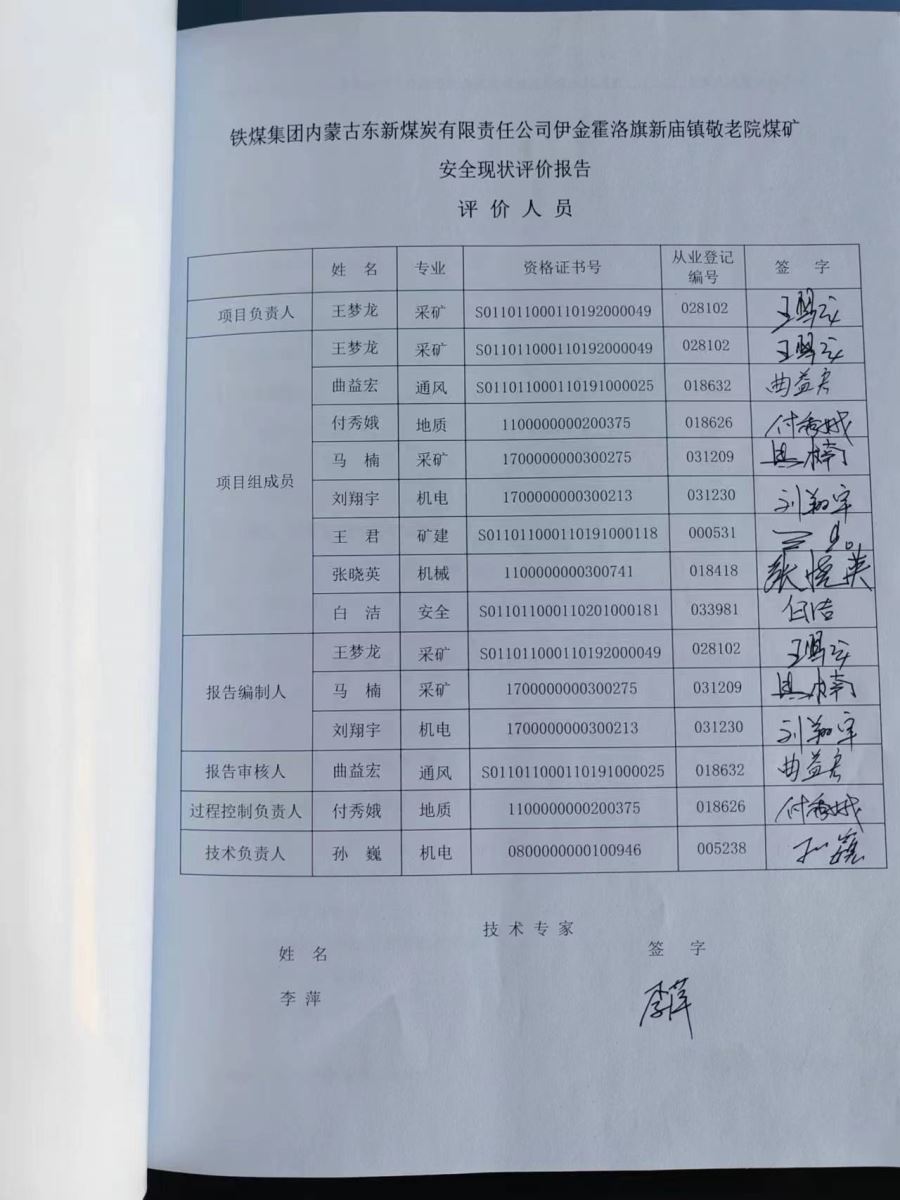 铁煤集团内蒙古东新煤炭有限责任公司伊金霍洛旗新庙镇敬老院煤矿
安全现状评价报告
评价人员
姓 名 专业 资格证书号 从业登记编号 签 字
项目负责人 王梦龙 采矿 S011011000110192000049 028102 王梦龙
项目组成员 王梦龙 采矿 S011011000110192000049 028102 王梦龙
曲益宏 通风 S011011000110191000025 018632 曲益宏
付秀娥 地质 1100000000200375 018626 付秀娥
马 楠 采矿 1700000000300275 031209 马楠
刘翔宇 机电 1700000000300213 031230 刘翔宇
王 君 矿建 S011011000110191000118 000531 王君
张晓英 机械 1100000000300741 018418 张晓英
白 洁 安全 S011011000110201000181 033981 白洁
报告编制人 王梦龙 采矿 S011011000110192000049 028102 王梦龙
马 楠 采矿 1700000000300275 031209 马楠
刘翔宇 机电 1700000000300213 031230 刘翔宇
报告审核人 曲益宏 通风 S011011000110191000025 018632 曲益宏
过程控制负责人 付秀娥 地质 1100000000200375 018626 付秀娥
技术负责人 孙 巍 机电 0800000000100946 005238 孙巍
技术专家
姓 名 签 字
李 萍 李萍